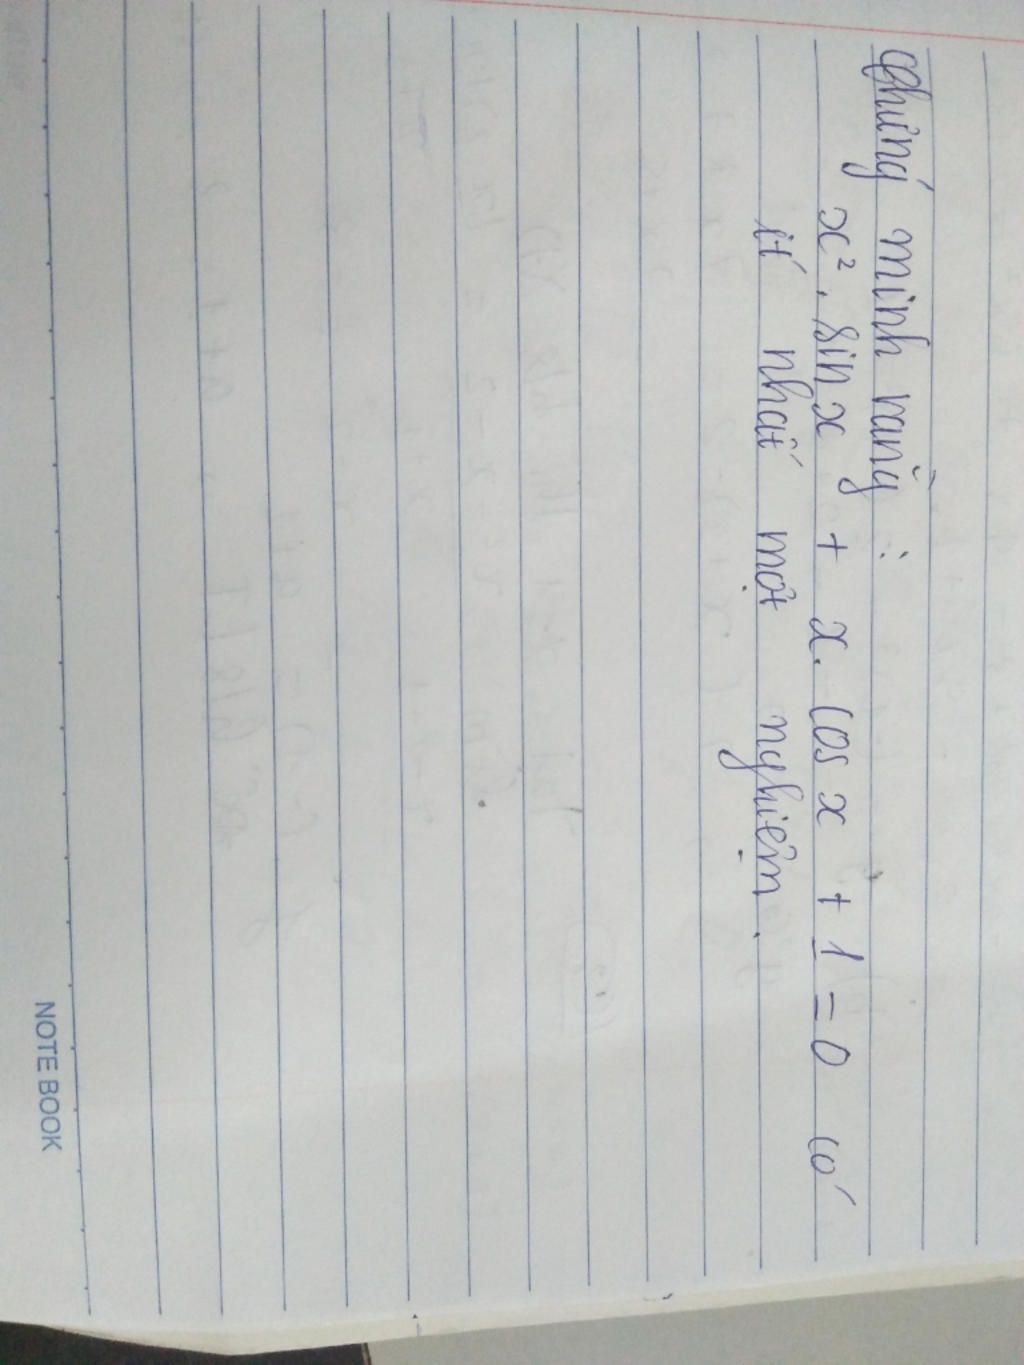 Chứng minh rằng :
x² . sin x + x. cos x + 1 = 0 có
ít nhất một nghiệm .
NOTE BOOK